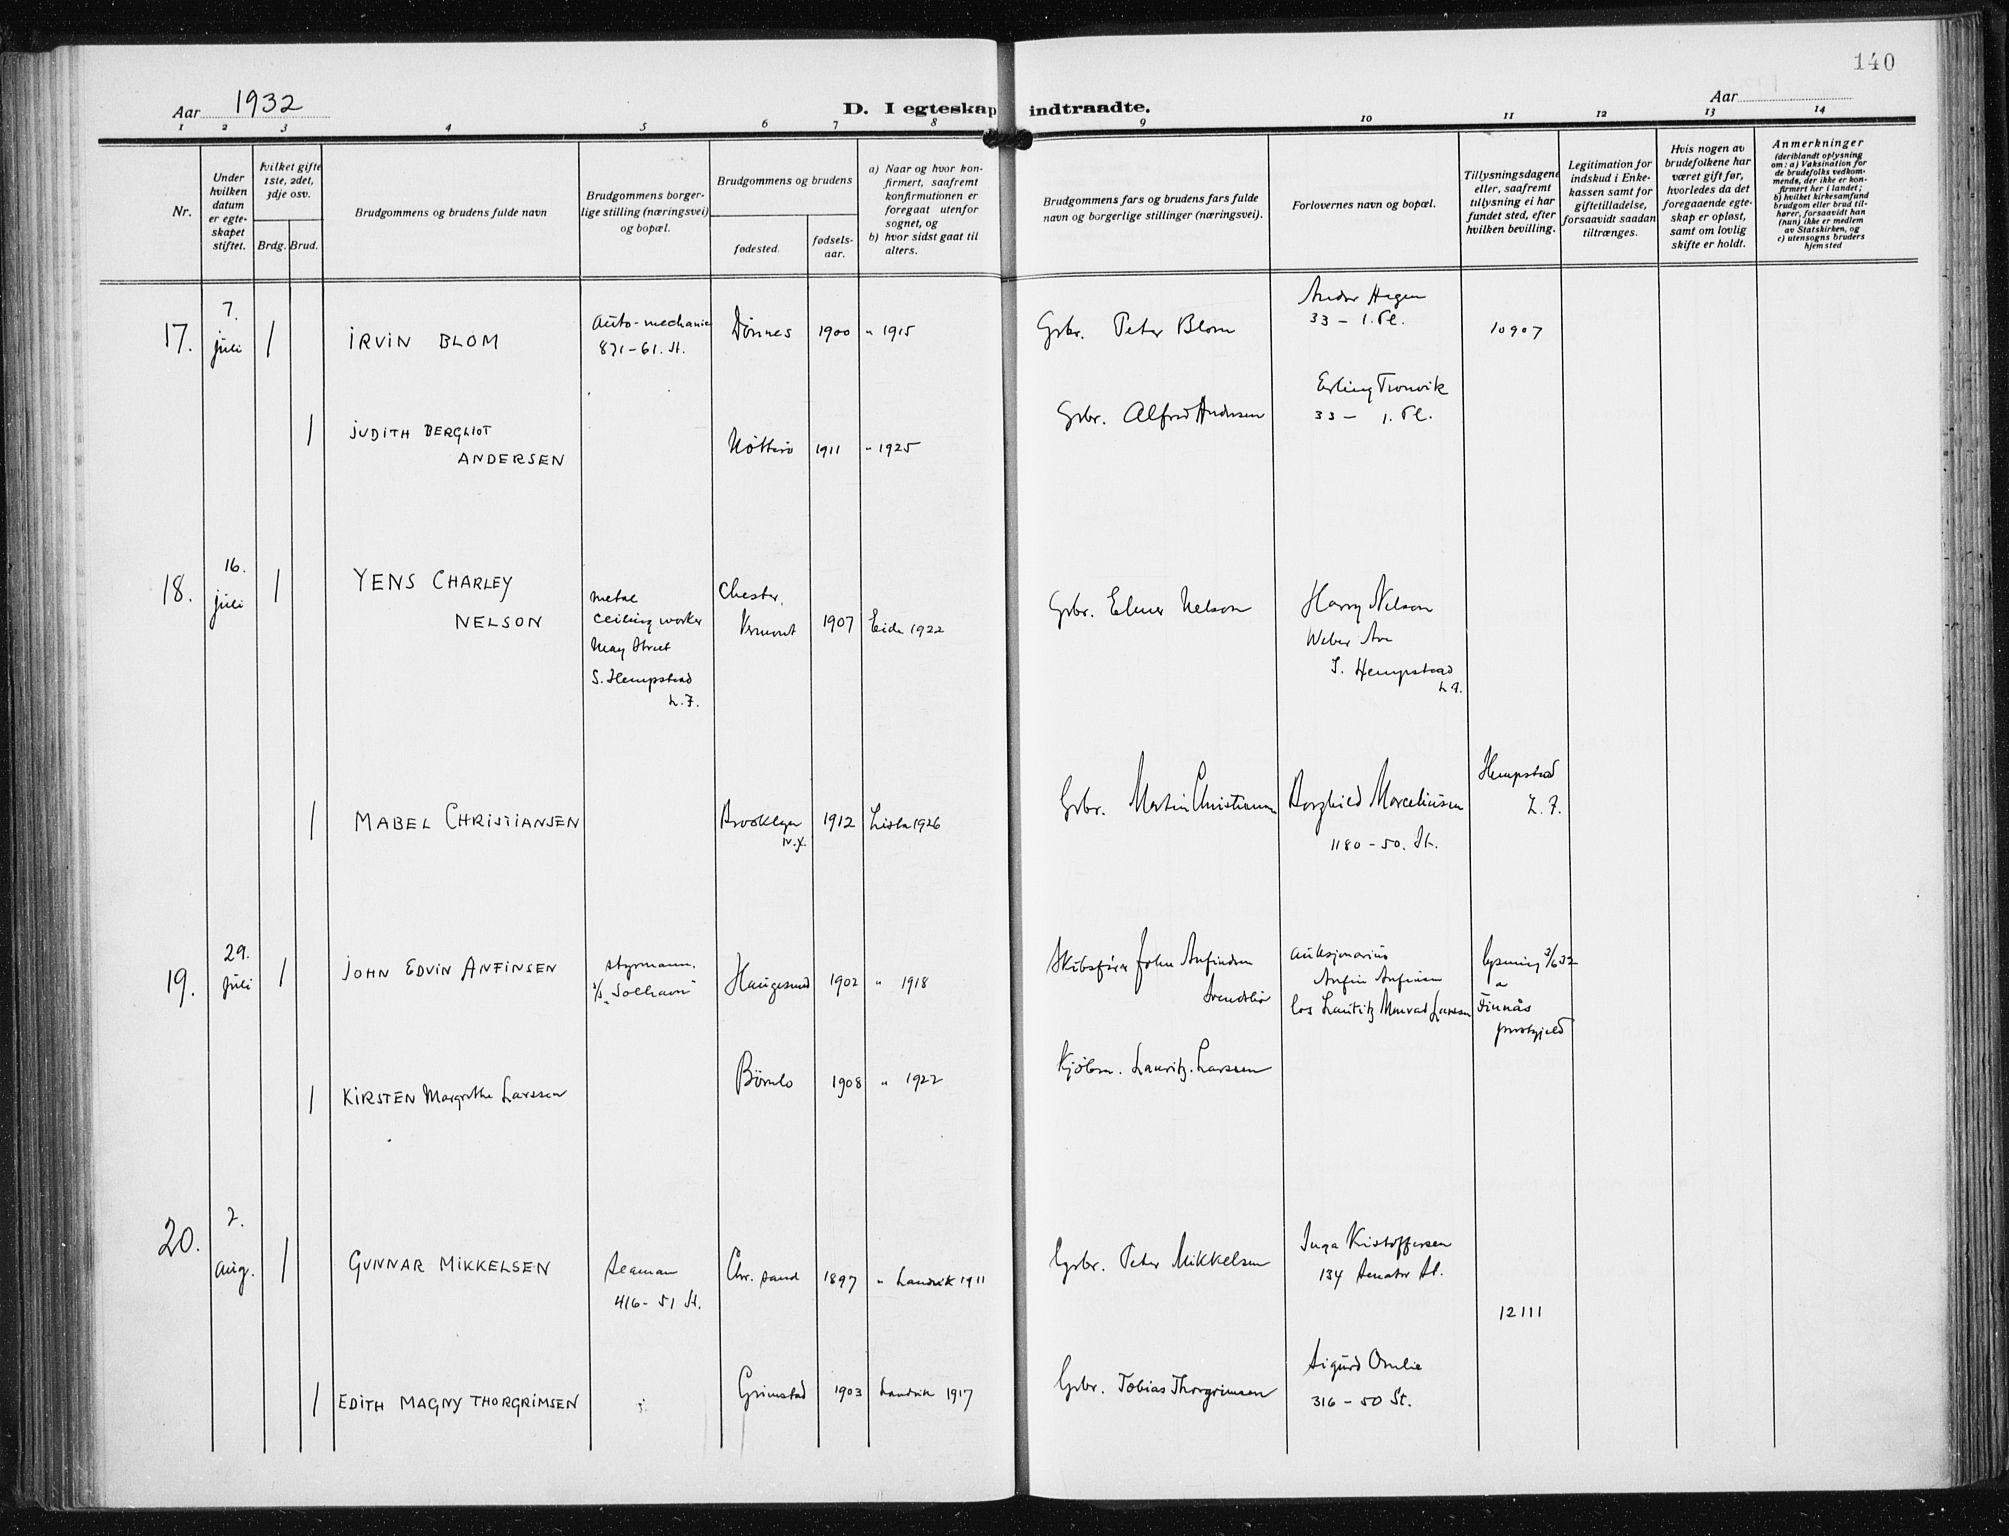 140
Aar 1932
D. I egteskap indtraadte.
Aar
1 2 3 4 5 6 7 8 9 10 11 12 13 14
Nr.
Under hvilken datum er egteskapet stiftet.
hvilket gifte 1ste, 2det, 3dje osv.
Brdg. Brud.
Brudgommens og brudens fulde navn
Brudgommens borgerlige stilling (næringsvei) og bopæl.
Brudgommens og brudens
fødested.
fødselsaar.
a) Naar og hvor konfirmert, saafremt konfirmationen er foregaat utenfor sognet, og
b) hvor sidst gaat til alters.
Brudgommens fars og brudens fars fulde navn og borgerlige stillinger (næringsvei).
Forlovernes navn og bopæl.
Tillysningsdagene eller, saafremt tillysning ei har fundet sted, efter hvilken bevilling.
Legitimation for indskud i Enkekassen samt for giftetilladelse, forsaavidt saadan tiltrænges.
Hvis nogen av brudefolkene har været gift før, hvorledes da det foregaaende egteskap er opløst, samt om lovlig skifte er holdt.
Anmerkninger
(deriblandt oplysning om: a) Vaksination for de brudefolks vedkommende, der ikke er konfirmert her i landet; b) hvilket kirkesamfund brudgom eller brud tilhører, forsaavidt han (hun) ikke er medlem av Statskirken, og c) utensogns bruders hjemsted
17. 7. juli 1 IRVIN BLOM
Auto-mechanic
871-61. St.
Dønnes 1900 " 1915
Grbr. Peter Blom
Hagen
33 - 1. Pl.
10907
1 JUDITH BERGLIOT
ANDERSEN
Nøtterø 1911 " 1925
Grbr. Alfred Andersen
Erling Tronvik
33 - 1. Pl.
18. 16. juli 1 YENS CHARLEY
NELSON
metal
ceiling worker
May Street
S. Hempstead
L.I.
Chester,
Vermont
1907 Eide 1922
Grbr. Elmer Nelson
Harry Nelson
Weber Ave
S. Hempstead
L.I.
1 MABEL CHRISTIANSEN
Brooklyn
N.Y.
1912 Lista 1926
Grbr. Martin Christiansen
Borghild Marceliussen
1180 - 50. St.
Hempstead
L.I.
19. 29. juli 1 JOHN EDVIN ANFINSEN
styrmann.
"Solhavn"
Haugesund 1902 " 1918
Skibsfører John Anfinsen
auksjonarius
Anfin Anfinsen
los Lauritz Monrad Larssen
lysning 3/6 32
Finnås
prestgjeld
1 KIRSTEN Margrethe Larssen
Børnlo 1908 " 1922
Kjøbm. Lauritz Larssen
20. 2. aug. 1 GUNNAR MIKKELSEN
seaman
416 - 51 St.
Chr.sand 1897 " Landvik 1911
Grbr. Peter Mikkelsen
Inga Kristoffersen
134 Senator St.
12111
1 EDITH MAGNY THORGRIMSEN
Grimstad 1903 Landvik 1917
Grbr. Tobias Thorgrimsen
Sigurd Omlie
316 - 50 St.